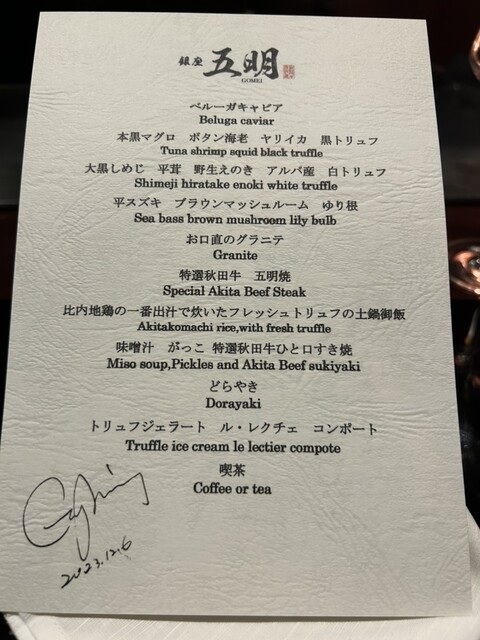 銀座 五明
GOMEI
ベルーガキャビア
Beluga caviar
本黒マグロ ボタン海老 ヤリイカ 黒トリュフ
Tuna shrimp squid black truffle
大黒しめじ 平茸 野生えのき アルバ産 白トリュフ
Shimeji hiratake enoki white truffle
平スズキ ブラウンマッシュルーム ゆり根
Sea bass brown mushroom lily bulb
お口直のグラニテ
Granite
特選秋田牛 五明焼
Special Akita Beef Steak
比内地鶏の一番出汁で炊いたフレッシュトリュフの土鍋御飯
Akitakomachi rice,with fresh truffle
味噌汁 がっこ 特選秋田牛ひと口すき焼
Miso soup,Pickles and Akita Beef sukiyaki
どらやき
Dorayaki
トリュフジェラート ル・レクチェ コンポート
Truffle ice cream le lectier compote
喫茶
Coffee or tea
2023.12.6